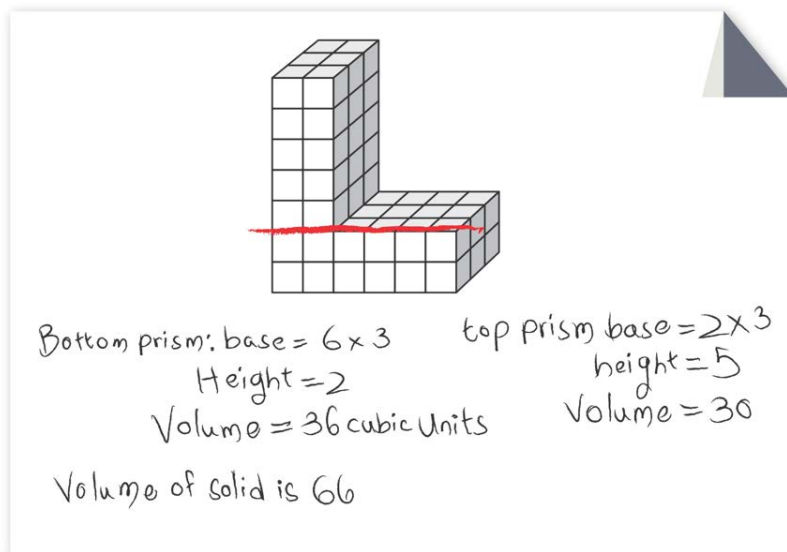 Bottom prism: base = 6 x 3
Height = 2
Volume = 36 cubic Units
top prism base = 2 x 3
height = 5
Volume = 30
Volume of solid is 66